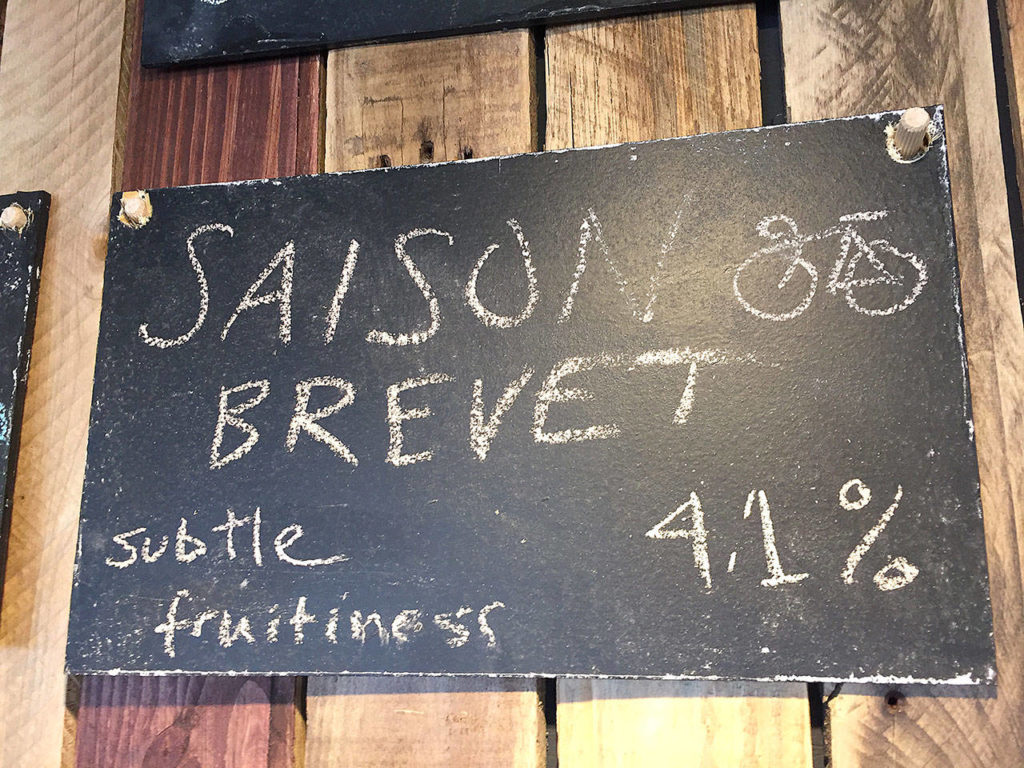 SAISON
BREVET
subtle
fruitiness
4.1%